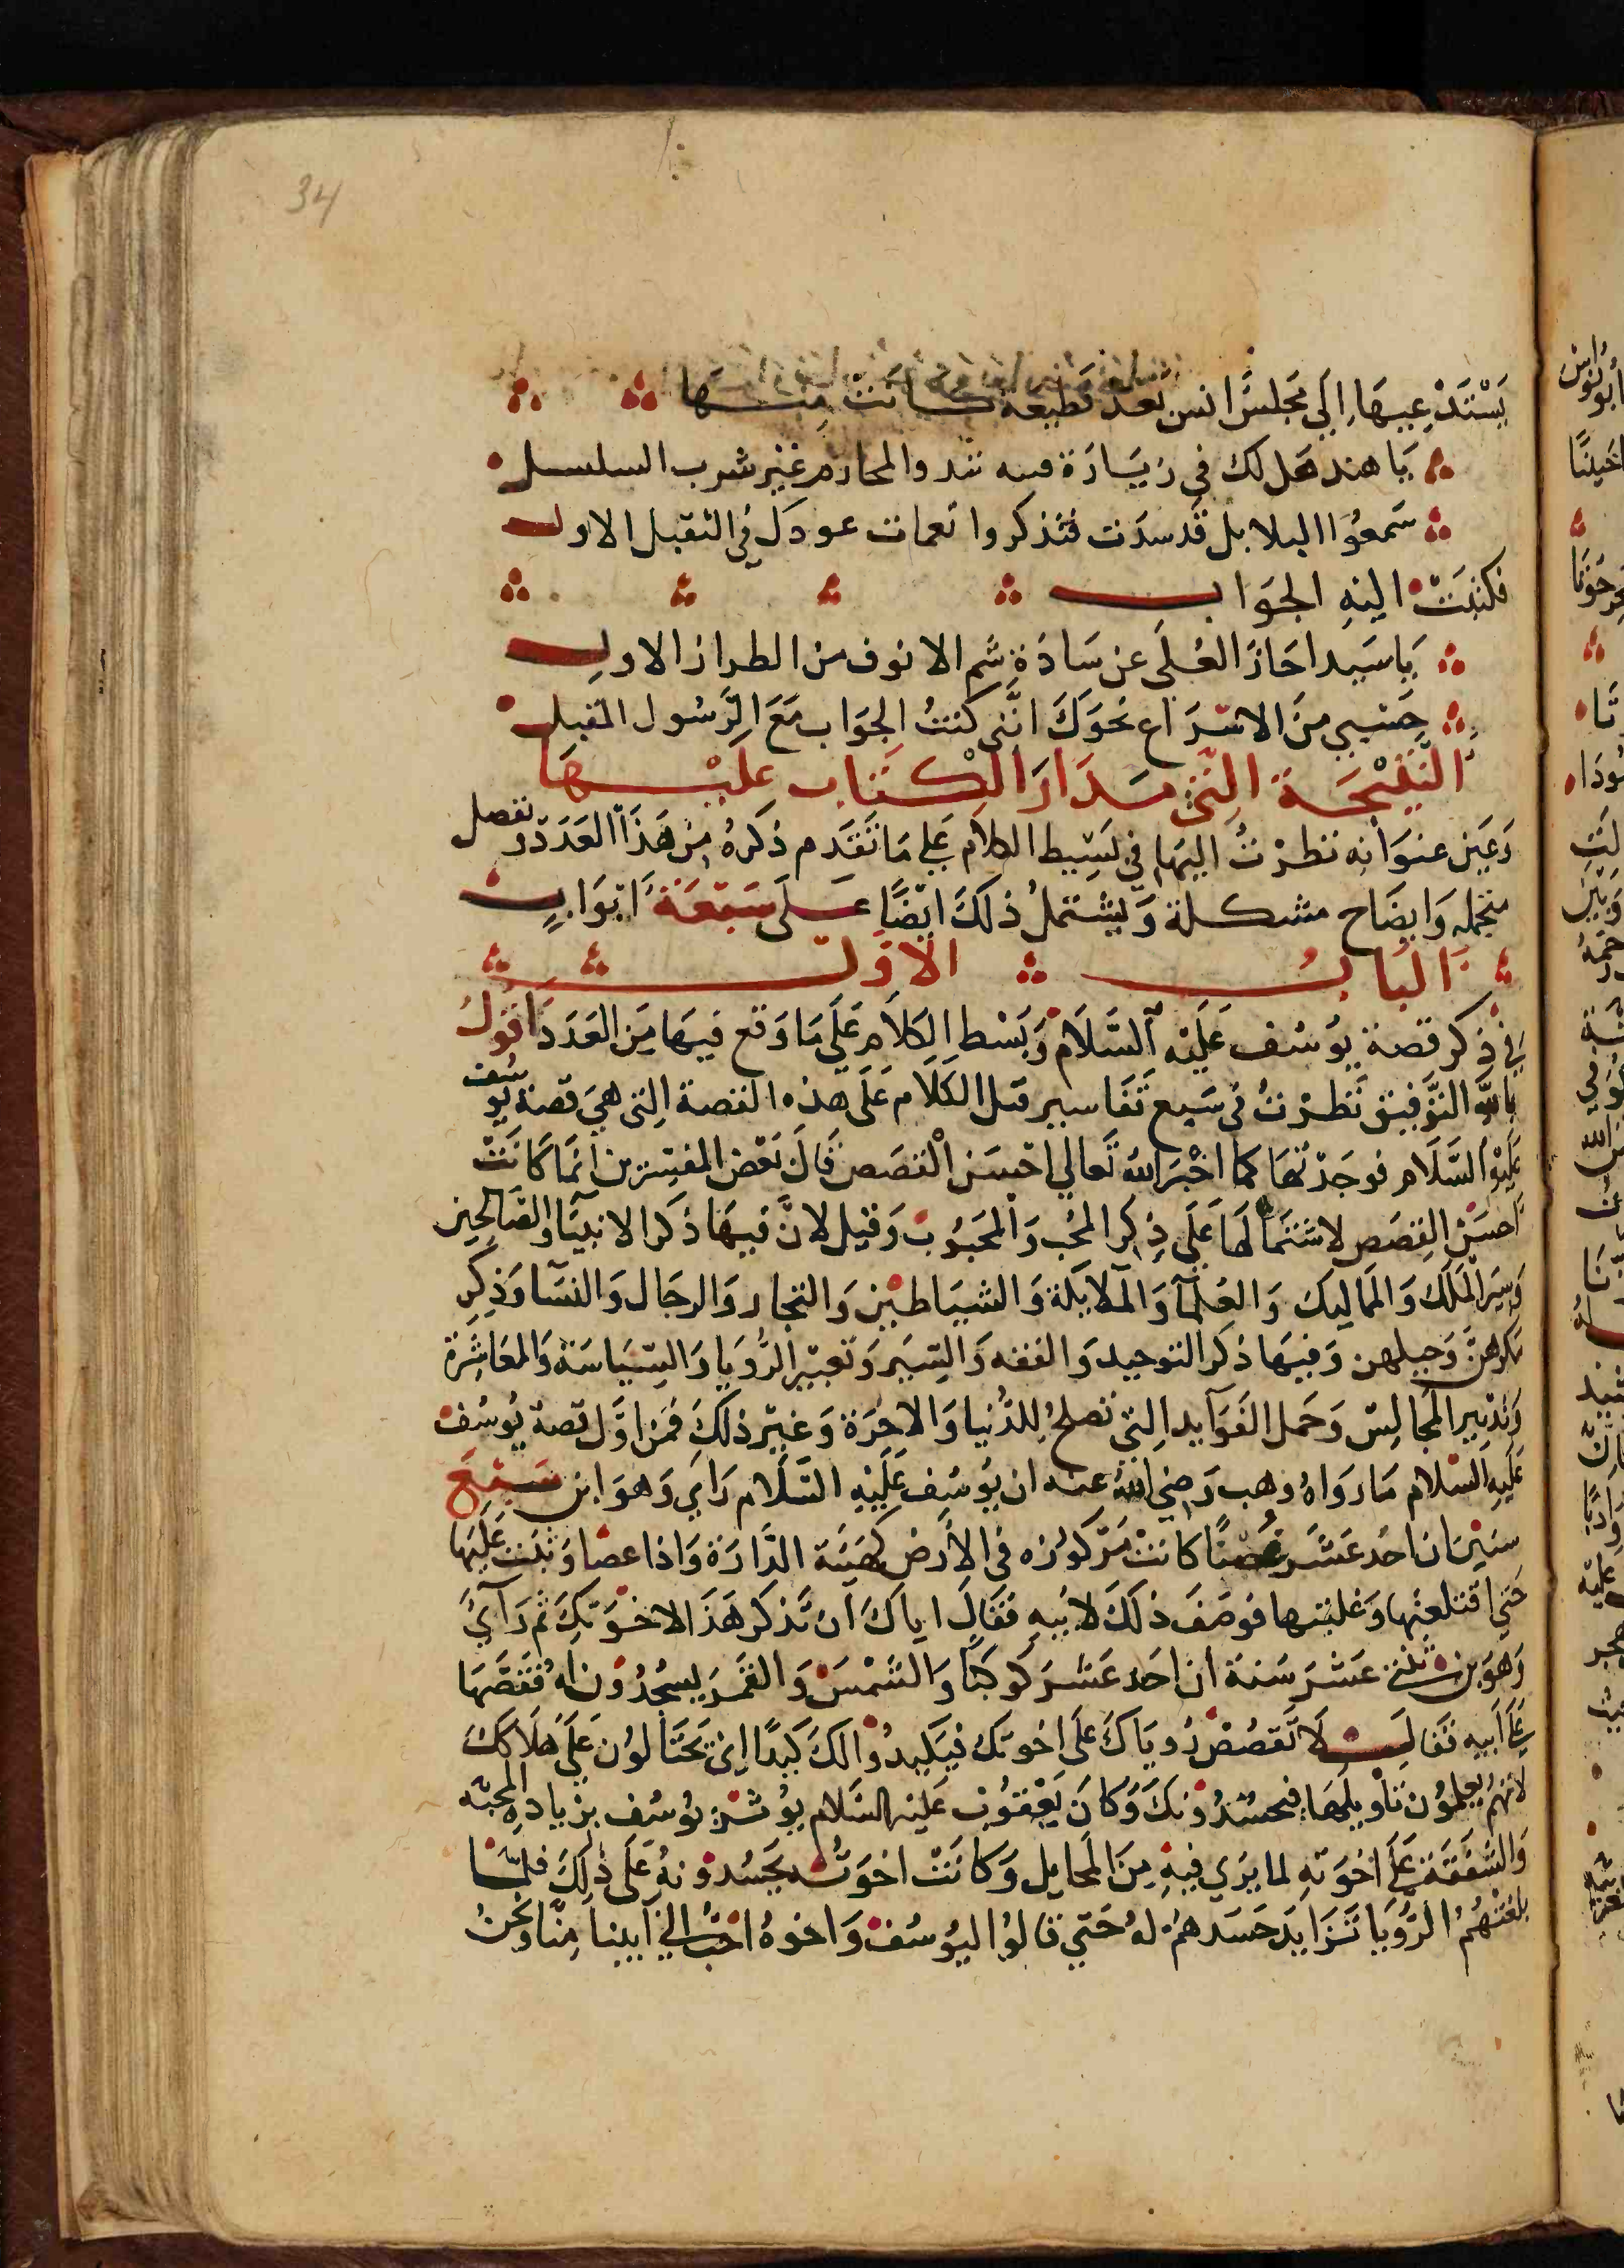 34
يَسْتَدْعِيهَا اِلَي مَجلسَ انس بَعد قطيعة كانت مِنها
يَا هند هَل لك في زيَارَة فىىه نبذوا المحارم غَيْر شرب السلسل
سَمعُوا البلابل قَد سدَت فتذكروا نَعمات عودَك فِي الثقيل الاول
فكتبَتْ اليْهِ الجَوَاب
يَا سَيدا حَازَ العُلَي عَن سَادَةٍ شم الانوف من الطراز الاول
حَسْبِي مِنَ الاسْرَاع نحْوَكَ انَّني كنتُ الجَوَاب مَعَ الرَّسُول المقبل
النَّتِيْجَة الَّتي مَدَار الكتاب عليْهَا
وَعَين عنوَانه نظرْتُ اليهَا في بَسِيط الكلام عَلي مَا تقَدم ذكرهُ مِن هَذا العَدَد وَتفصل
مجمله وَايضَاح مشكلة وَيشتملُ ذلكَ ايْضًا عَلَي سَبْعَة ابْوَاب
البَابُ الاوَّلُ
في ذكر قصة يوُسُف عَلَيْه السَّلَام وَبَسْط الكلَام عَلَي مَا وَقع فيهَا مِنَ العَدَد اقوُلُ
بالله التَّوْفيق نَظرْتُ في سَبع تَفَاسير قبل الكَلَام عَلَي هَذه القصة التي هيَ قصة يوسُف
عَلَيْهِ السَّلَام فوجَدْتهَا كما اخْبَرَ الله تَعالي احْسَن القصَص قالَ بَعْض المفسّرين انمَا كانَتْ
احسَنْ القصَص لاشتمَالهَا عَلَي ذِكر المحُب وَالمحبُوبْ وَقيل لانَّ فيهَا ذكر الانبيَا وَالصَالحين
وَسِيَر المَلَك وَالممَاليك وَالعُلمَآ وَالملَايكة وَالشيَاطيْن وَالتجار وَالرجَال وَالنسَآ وَذِكر
مكرهنَّ وَحيلهن وَفيهَا ذكر التوحيد وَالفقه وَالسِّيَر وَتعبيْر الرُّويَا وَالسّيَاسَة وَالمعَاشرَة
وَتدْبير المجَالِسْ وَحمل الفَوَايد التي تصلحُ للدُّنيا وَالاخرَة وَغيْر ذلكَ فمن اوَّل قصة يُوسُف
عَلَيهِ السّلام مَا رَوَاهُ وَهب رَضي الله عنه ان يوُسُف عَلَيْهِ السَّلَام رَاي وَهوَ ابن سَبْع
سنيْن ان احَد عَشَر غصنًا كانَتْ مَرْكوُزه في الارْض كهَيَئَة الدَّارَة وَاذا عصًا وَثبت عَلَيهَا
حَتي اقتلعتها وَغلبتها فوصَفَ ذلكَ لابيهِ فقَالَ اياكَ ان تَذكر هَذَا لاخوَتكَ ثم رَآيْ
وَهوَ بن ثنتي عَشرَ سَنة ان احَد عَشَر كوكبًا وَالشمْسَ وَالقمَر يسجُدُون لهُ فقَصّهَا
عَلي ابيه فَقَالَ لَا تَقصُصْ رُويَاكَ علَي اخوتك فيَكيدُوا لكَ كَيدًا اي يَحتَالوُن عَلَي هلَاكك
لانهمُ يعلموُن تَاْويلهَا فيحسُدُونكَ وَكانَ يَعْقوُب عَليْه السَّلَام يوُثر يوُسُف بزيادَه المحبّه
وَالشفَقة عَلي اخوَتهِ لما يَرَي فيهِ مِنَ المخايل وَكانَتْ اخوَتُه يحَسُدونهُ عَلَي ذلكَ فلمَّا
بلغتهُمُ الرُّويَا تَزَايدَ حَسَدهمُ لهُ حَتي قالوُا ليُوسُف وَاخوهُ احَبُّ الي ابينا مِنَّا وَنحَنُ